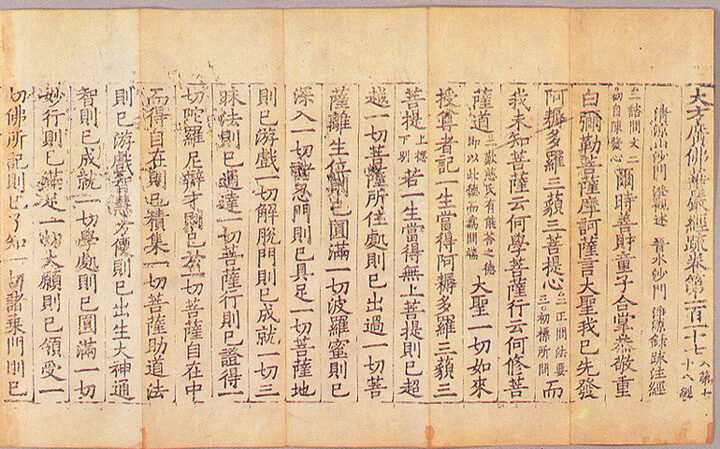 大方廣佛華嚴經疏卷第一百一十七 入第七十八經
清涼山沙門 澄觀述 晉水沙門 淨源錄疏注經
二諮問文二初自陳發心 爾時善財童子合掌恭敬重
白彌勒菩薩摩訶薩言大聖我已先發
阿耨多羅三藐三菩提心 二正問法要三初標所問 而
我未知菩薩云何學菩薩行云何修菩
薩道 二歎慈氏有能答之德即以此德而為問端 大聖一切如來
授尊者記一生當得阿耨多羅三藐三
菩提 上標下別 若一生當得無上菩提則已超
越一切菩薩所住處則已出過一切菩
薩離生位則已圓滿一切波羅蜜則已
深入一切諸忍門則已具足一切菩薩地
則已游戲一切解脫門則已成就一切三
昧法則已通達一切菩薩行則已證得一
切陀羅尼辯才則已於一切菩薩自在中
而得自在則已積集一切菩薩助道法
則已游戲智慧方便則已出生大神通
智則已成就一切學處則已圓滿一切
妙行則已滿足一切大願則已領受一
切佛所記則已了知一切諸乘門則已